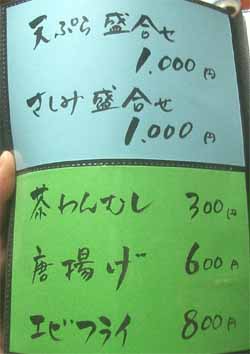 天ぷら盛合せ
1.000円
さしみ盛合せ
1.000円
茶わんむし 300円
唐揚げ 600円
エビフライ 800円